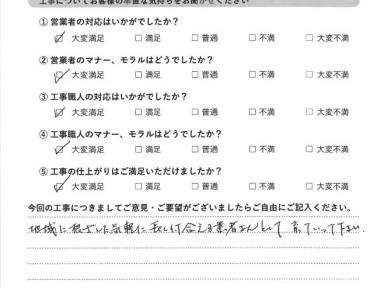 工事についてお客様の率直な気持ちをお聞かせください
① 営業者の対応はいかがでしたか？
☑ 大変満足 □ 満足 □ 普通 □ 不満 □ 大変不満
② 営業者のマナー、モラルはどうでしたか？
☑ 大変満足 □ 満足 □ 普通 □ 不満 □ 大変不満
③ 工事職人の対応はいかがでしたか？
☑ 大変満足 □ 満足 □ 普通 □ 不満 □ 大変不満
④ 工事職人のマナー、モラルはどうでしたか？
☑ 大変満足 □ 満足 □ 普通 □ 不満 □ 大変不満
⑤ 工事の仕上がりはご満足いただけましたか？
☑ 大変満足 □ 満足 □ 普通 □ 不満 □ 大変不満
今回の工事につきましてご意見・ご要望がございましたらご自由にご記入ください。
地域に根ざした気軽に お付合える業者さんとして 育っていって下さい.